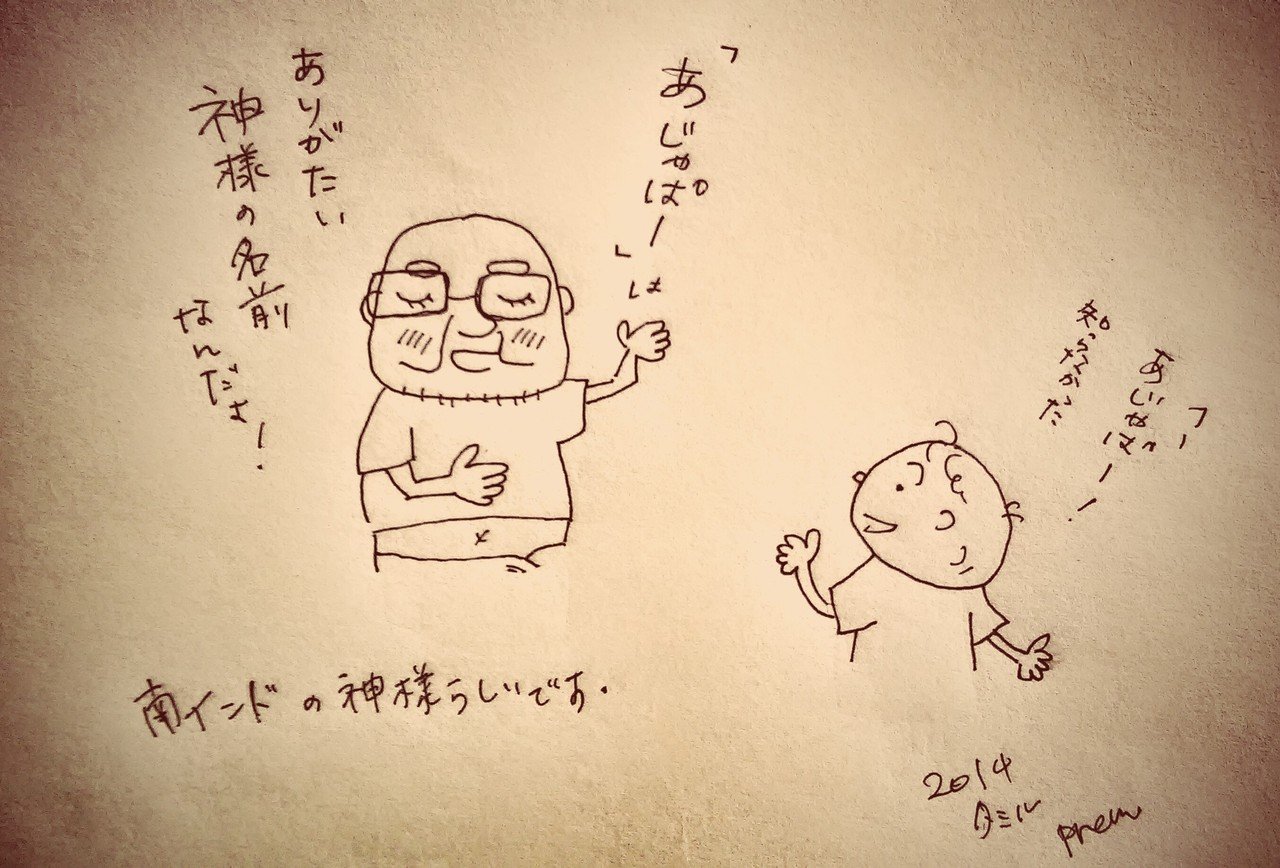 「あじゃぱー」は
ありがたい
神様の名前
なんだよ!
「あじゃぱー
知らなかった
南インドの神様らしいです.
2014
タミル
Prem